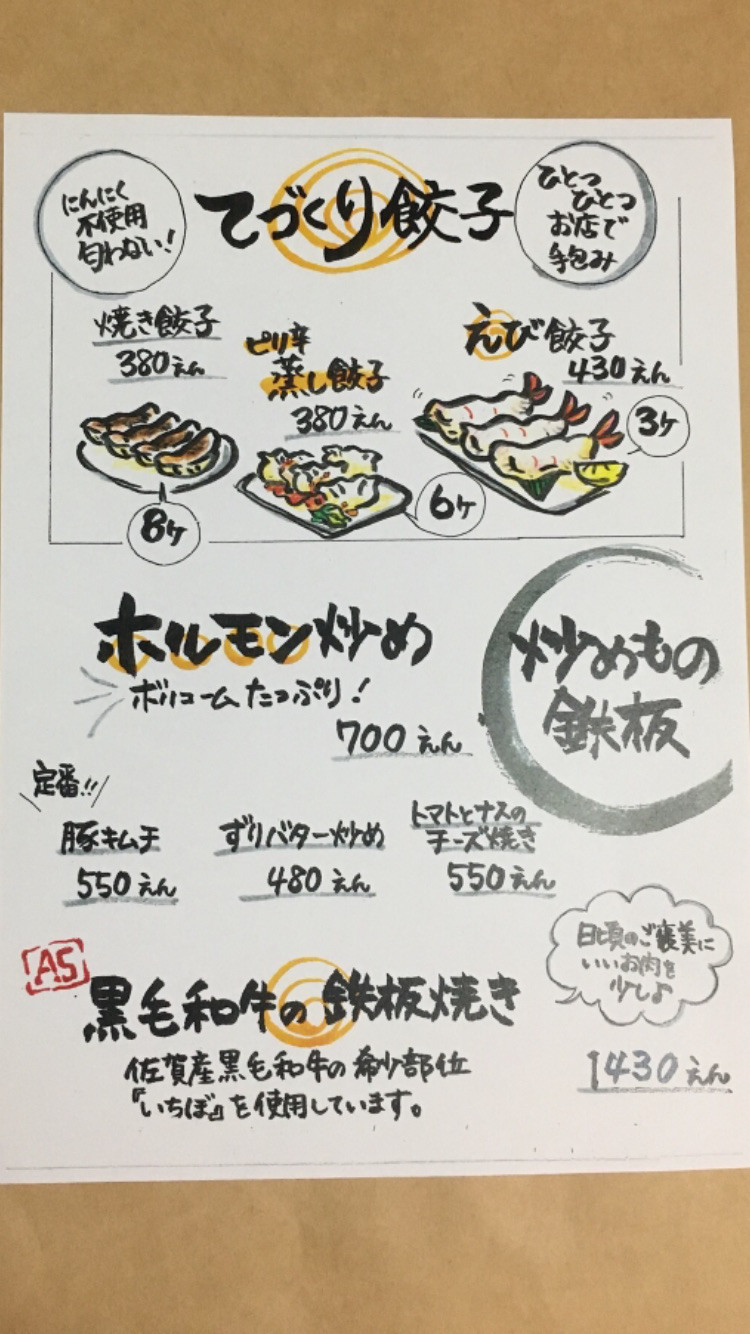 にんにく
不使用
匂わない！
てづくり餃子
ひとつ
ひとつ
お店で
手包み
焼き餃子
380えん
8ケ
ピリ辛
蒸し餃子
380えん
6ケ
えび餃子
430えん
3ケ
炒めもの
鉄板
ホルモン炒め
ボリュームたっぷり！
700えん
定番!!
豚キムチ
550えん
ずりバター炒め
480えん
トマトとナスの
チーズ焼き
550えん
A5
黒毛和牛の鉄板焼き
佐賀産黒毛和牛の希少部位
『いちぼ』を使用しています。
日頃のご褒美に
いいお肉を
少し♪
1430えん